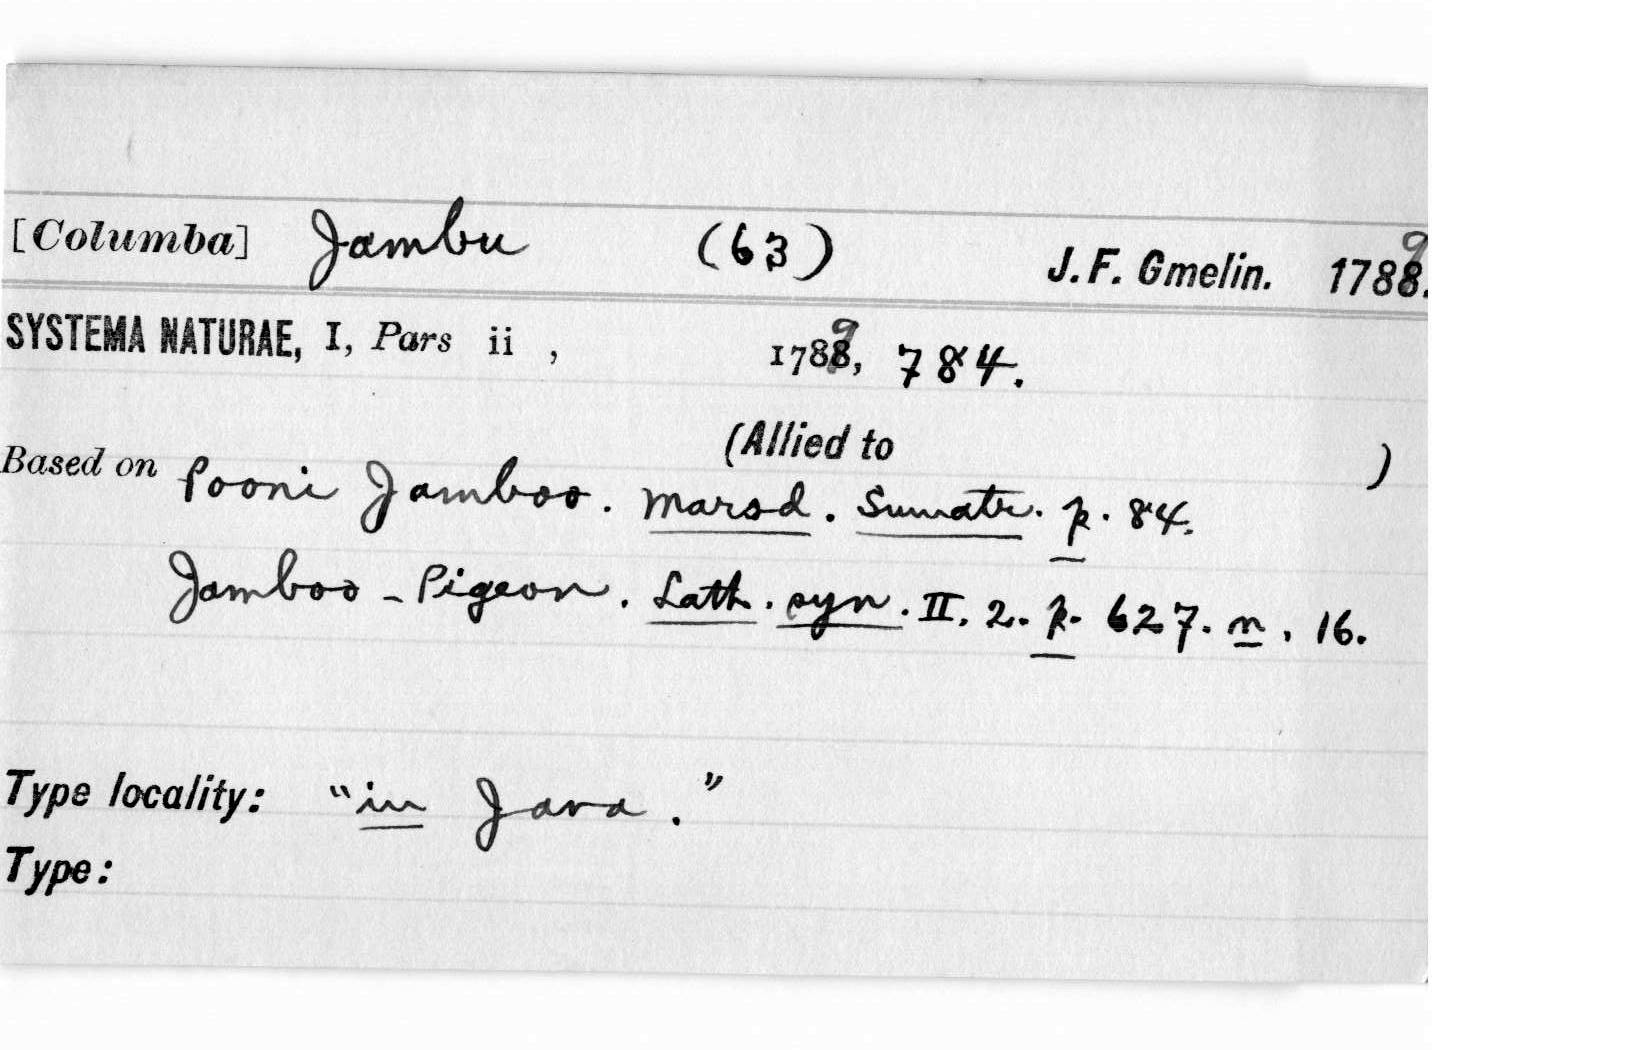 [Columba] Jambu (63) J. F. Gmelin. 1789.
SYSTEMA NATURAE, I, Pars ii , 1789, 784.
(Allied to )
Based on Pooni Jamboo. Marsd. Sumatr. p. 84.
Jamboo-Pigeon. Lath. syn. II. 2. p. 627. n. 16.
Type locality: "in Java."
Type: